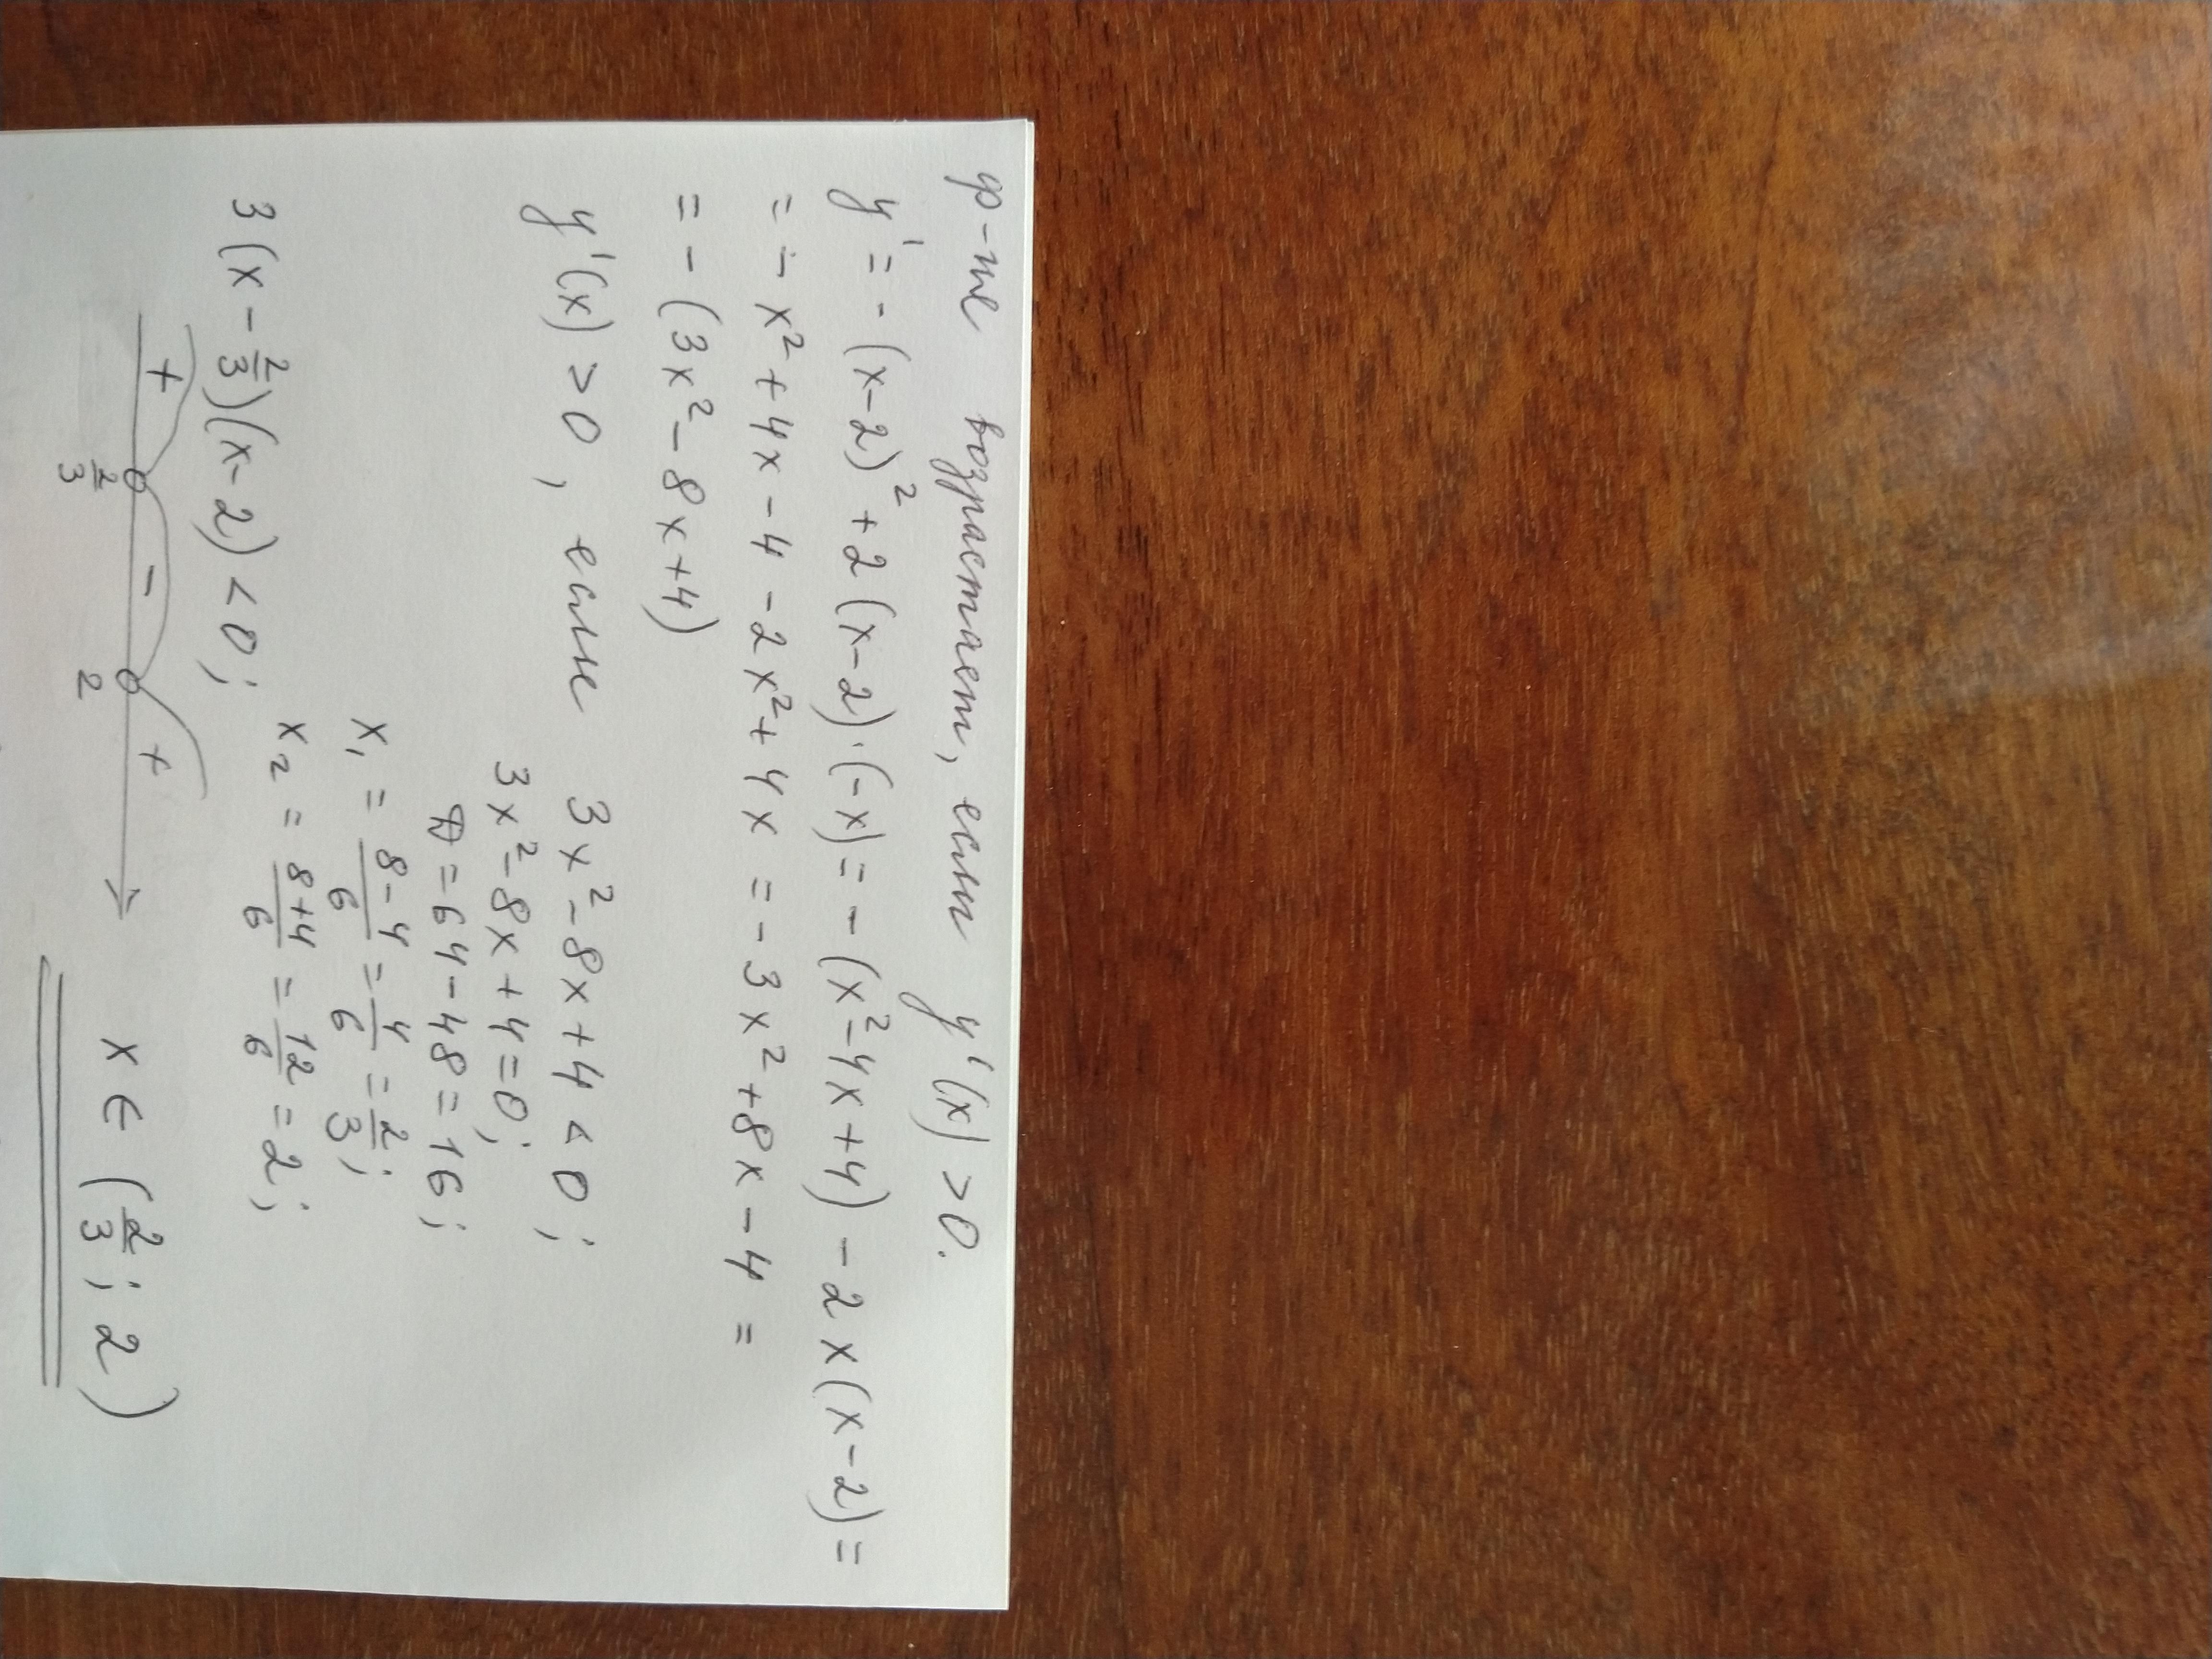 ф-ия возрастает, если y'(x) > 0.
y' = - (x-2)² + 2(x-2)·(-x) = - (x²-4x+4) - 2x(x-2) =
= - x² + 4x - 4 - 2x² + 4x = - 3x² + 8x - 4 =
= - (3x² - 8x + 4)
y'(x) > 0, если 3x² - 8x + 4 < 0;
3x² - 8x + 4 = 0;
D = 64 - 48 = 16;
x₁ = 8-4/6 = 4/6 = 2/3;
x₂ = 8+4/6 = 12/6 = 2;
3(x - 2/3)(x-2) < 0;
+ - +
2/3 2
x ∈ (2/3; 2)